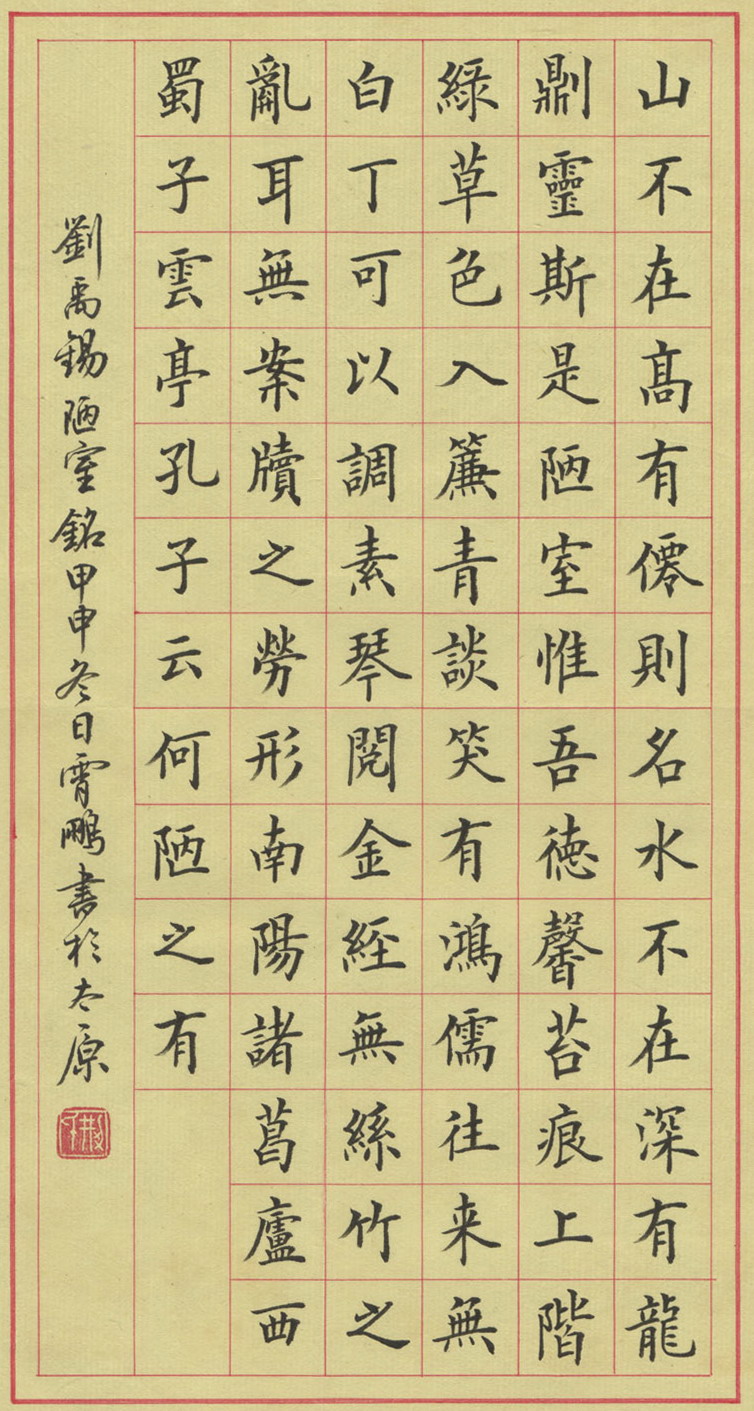 山不在髙有僊則名水不在深有龍
𠟭靈斯是陋室惟吾徳馨苔痕上階
緑草色入簾青談笑有鴻儒往来無
白丁可以調素琴閱金經無絲竹之
亂耳無案牘之勞形南陽諸葛廬西
蜀子雲亭孔子云何陋之有
劉禹錫陋室銘甲申冬日霄鵬書於太原